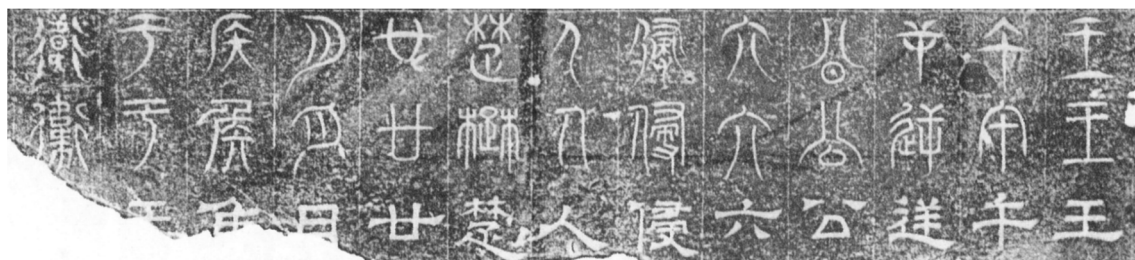 王王王
午午午
逆逆逆
公公公
六六六
侵侵侵
人人人
楚楚楚
廿廿廿
月月月
侯侯侯
于于于
衛衛